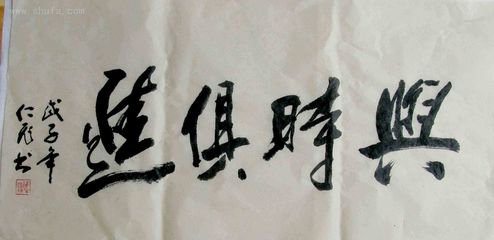 與時俱進
戊子年
仁彪书
www.shufa.com